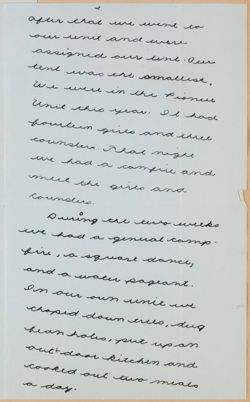 2.
after that we went to
our unit and were
assigned our tent. Our
tent was the smallest.
We were in the Pionee
Unit this year. It had
fourteen girls and three
counslers. That night
we had a campfire and
meet the girls and
Counslers.
During the two weeks
we had a genual camp-
fire, a square dance,
and a water pageant.
In our own unit we
choped down trees, dug
bean holes, put up an
out-door kitchen and
cooked out two meals
a day.